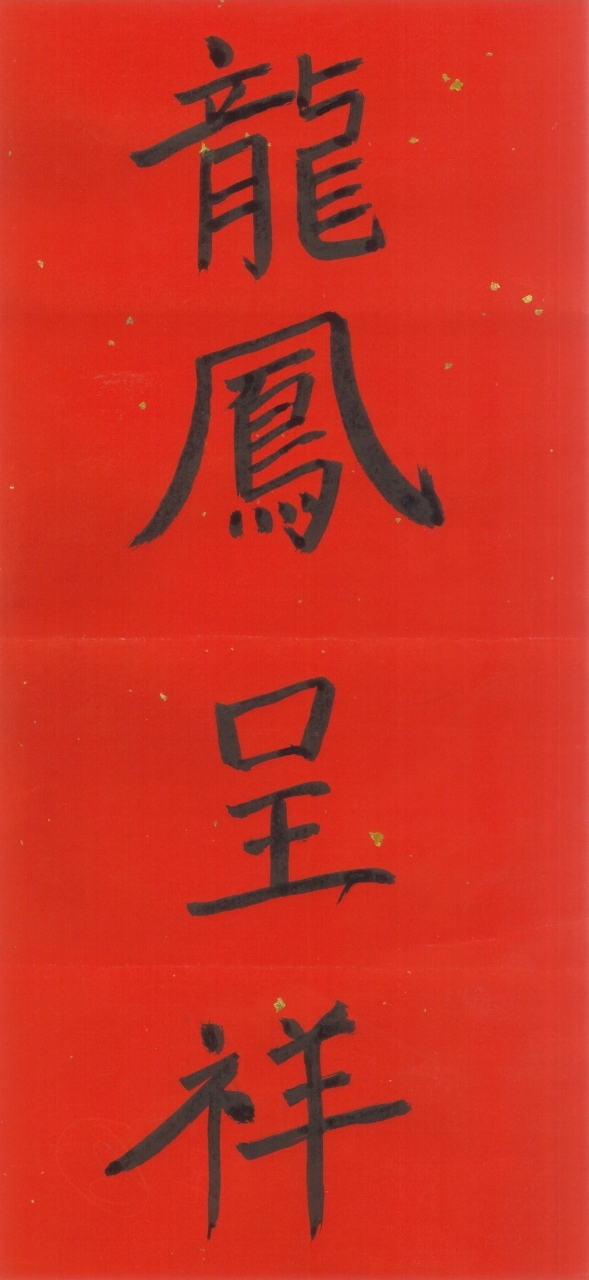 龍鳳呈祥